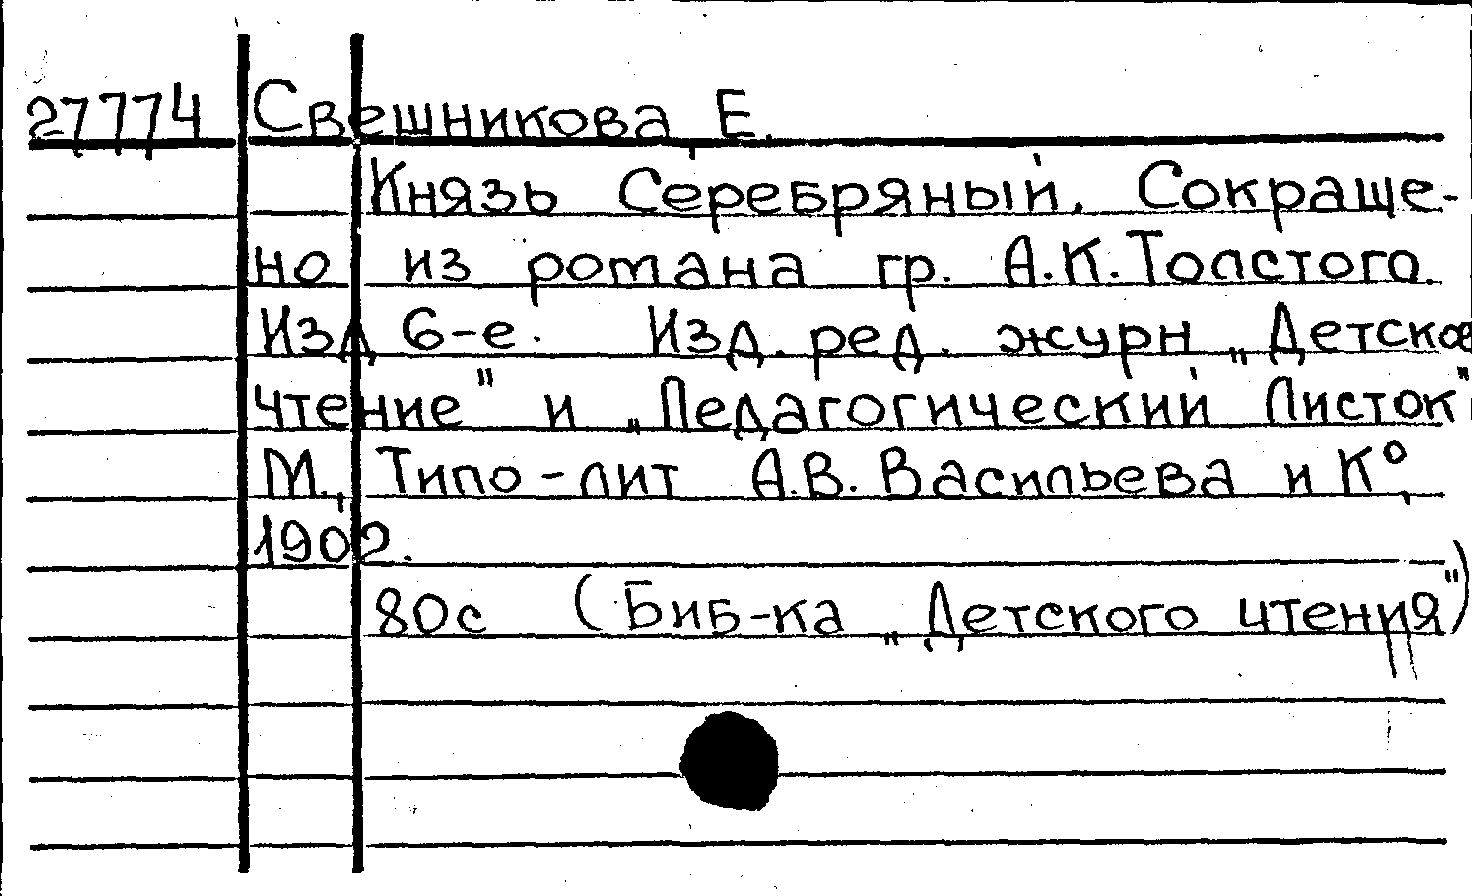 27774 Свешникова, Е.
Князь Серебряный. Сокраще-
но из романа гр. А.К.Толстого.
Изд. 6-е. Изд. ред. журн „Детское
чтение" и „Педагогический Листок"
М., Типо-лит А.В. Васильева и К°,
1902.
80с (Биб-ка „Детского чтения")